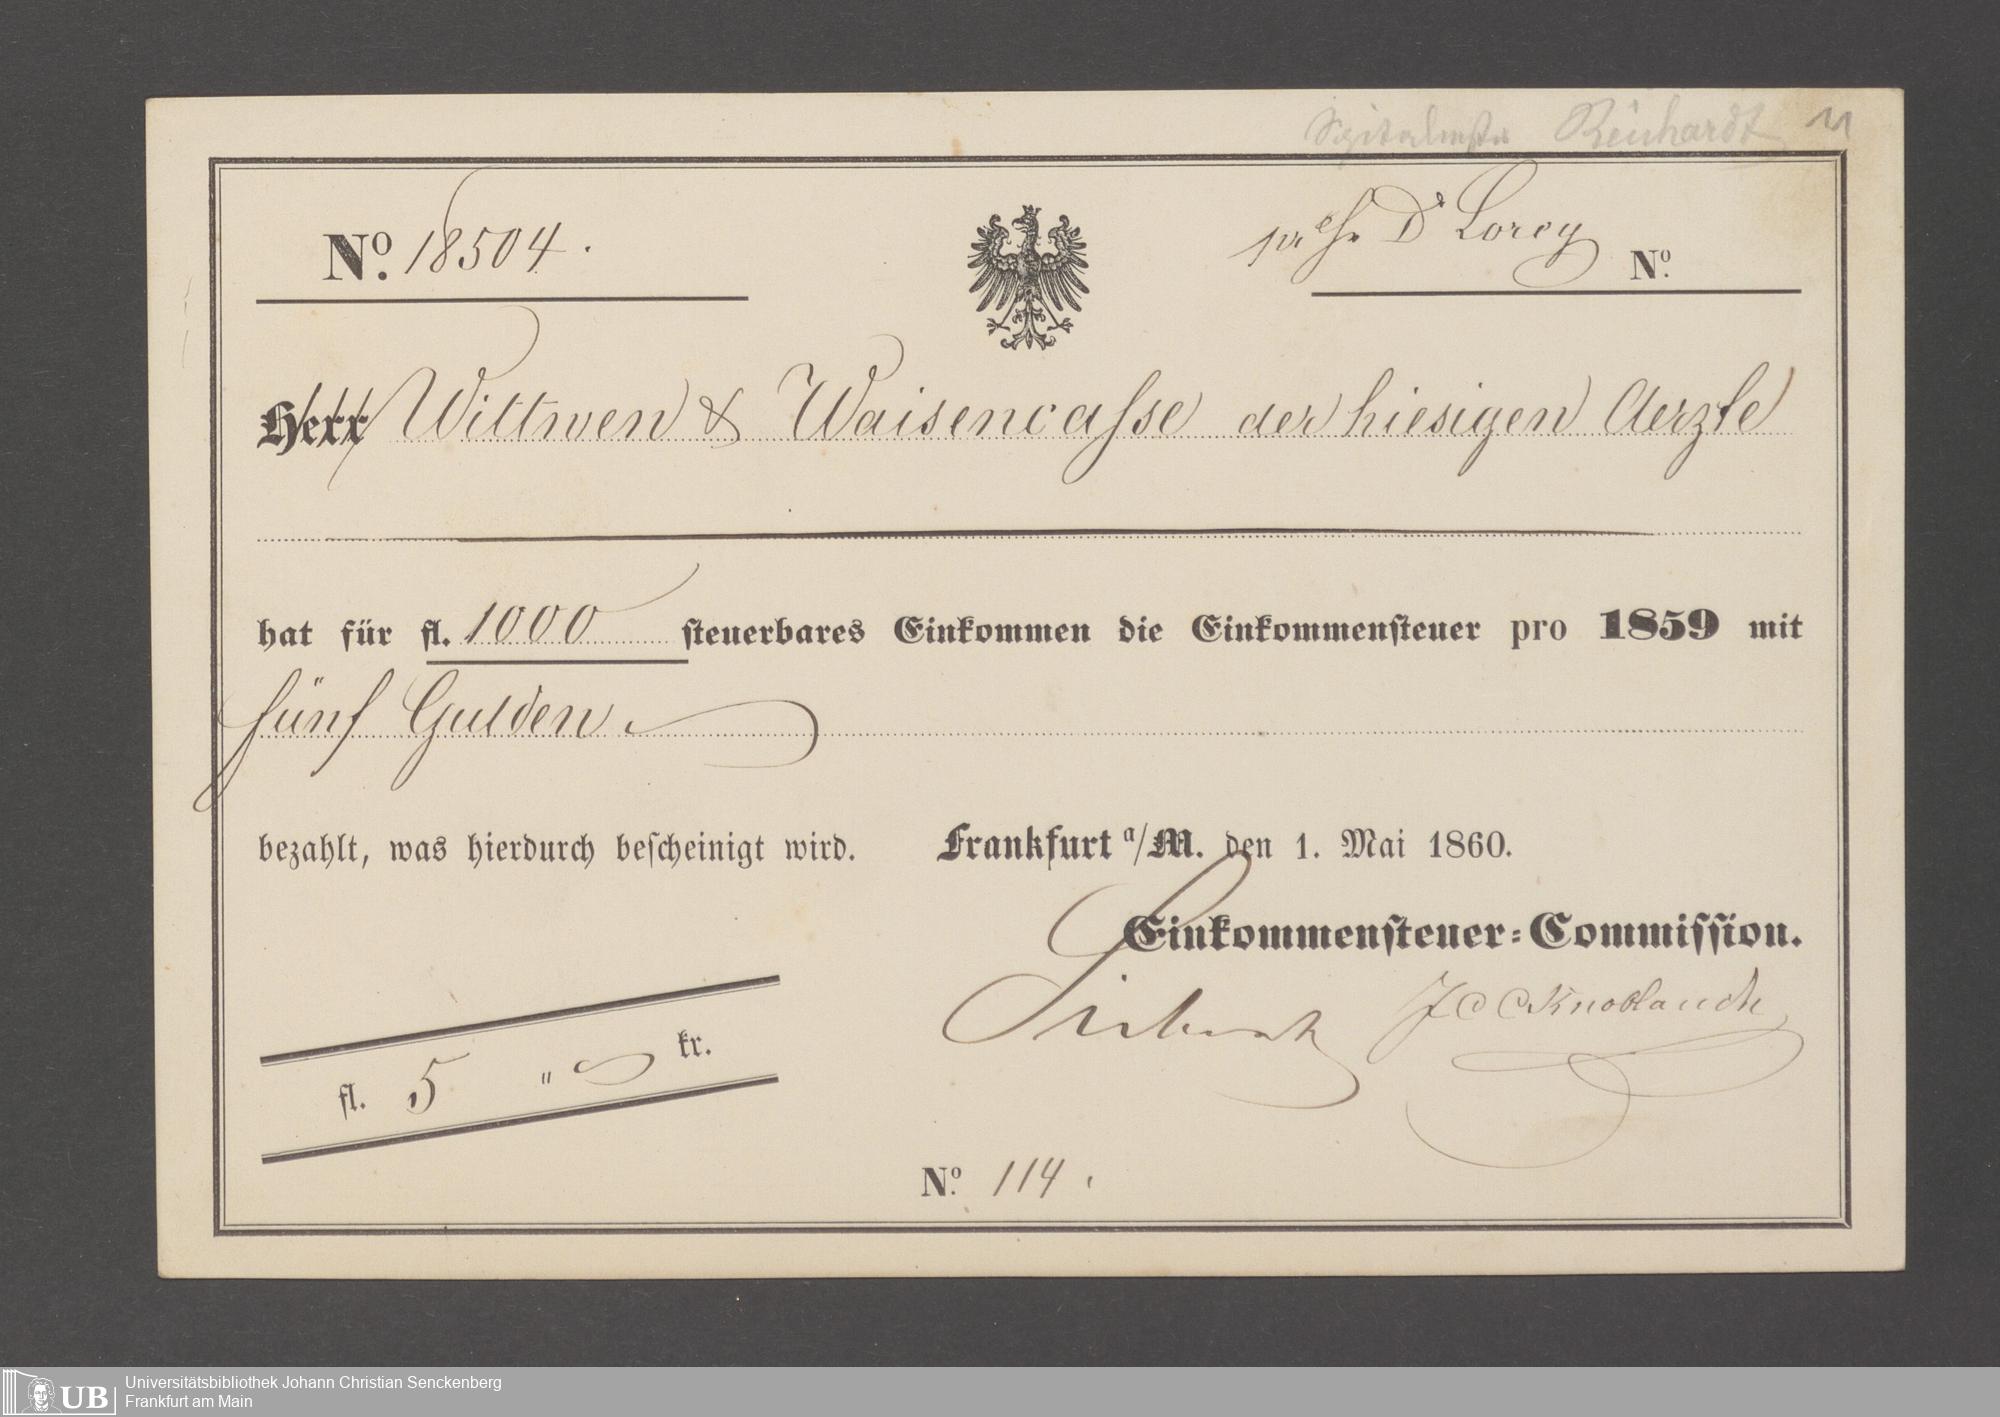 Reinhardt 11
No. 18504.
pr Hr Dr Lorey No.
Herr Wittwen & Waisencasse der hiesigen Aerzte
hat für fl. 1000 steuerbares Einkommen die Einkommensteuer pro 1859 mit
fünf Gulden
bezahlt, was hierdurch bescheinigt wird. Frankfurt a/M. den 1. Mai 1860.
Einkommensteuer-Commission.
J C C Knoblauch
fl. 5 " kr.
No. 114.
UB Universitätsbibliothek Johann Christian Senckenberg
Frankfurt am Main